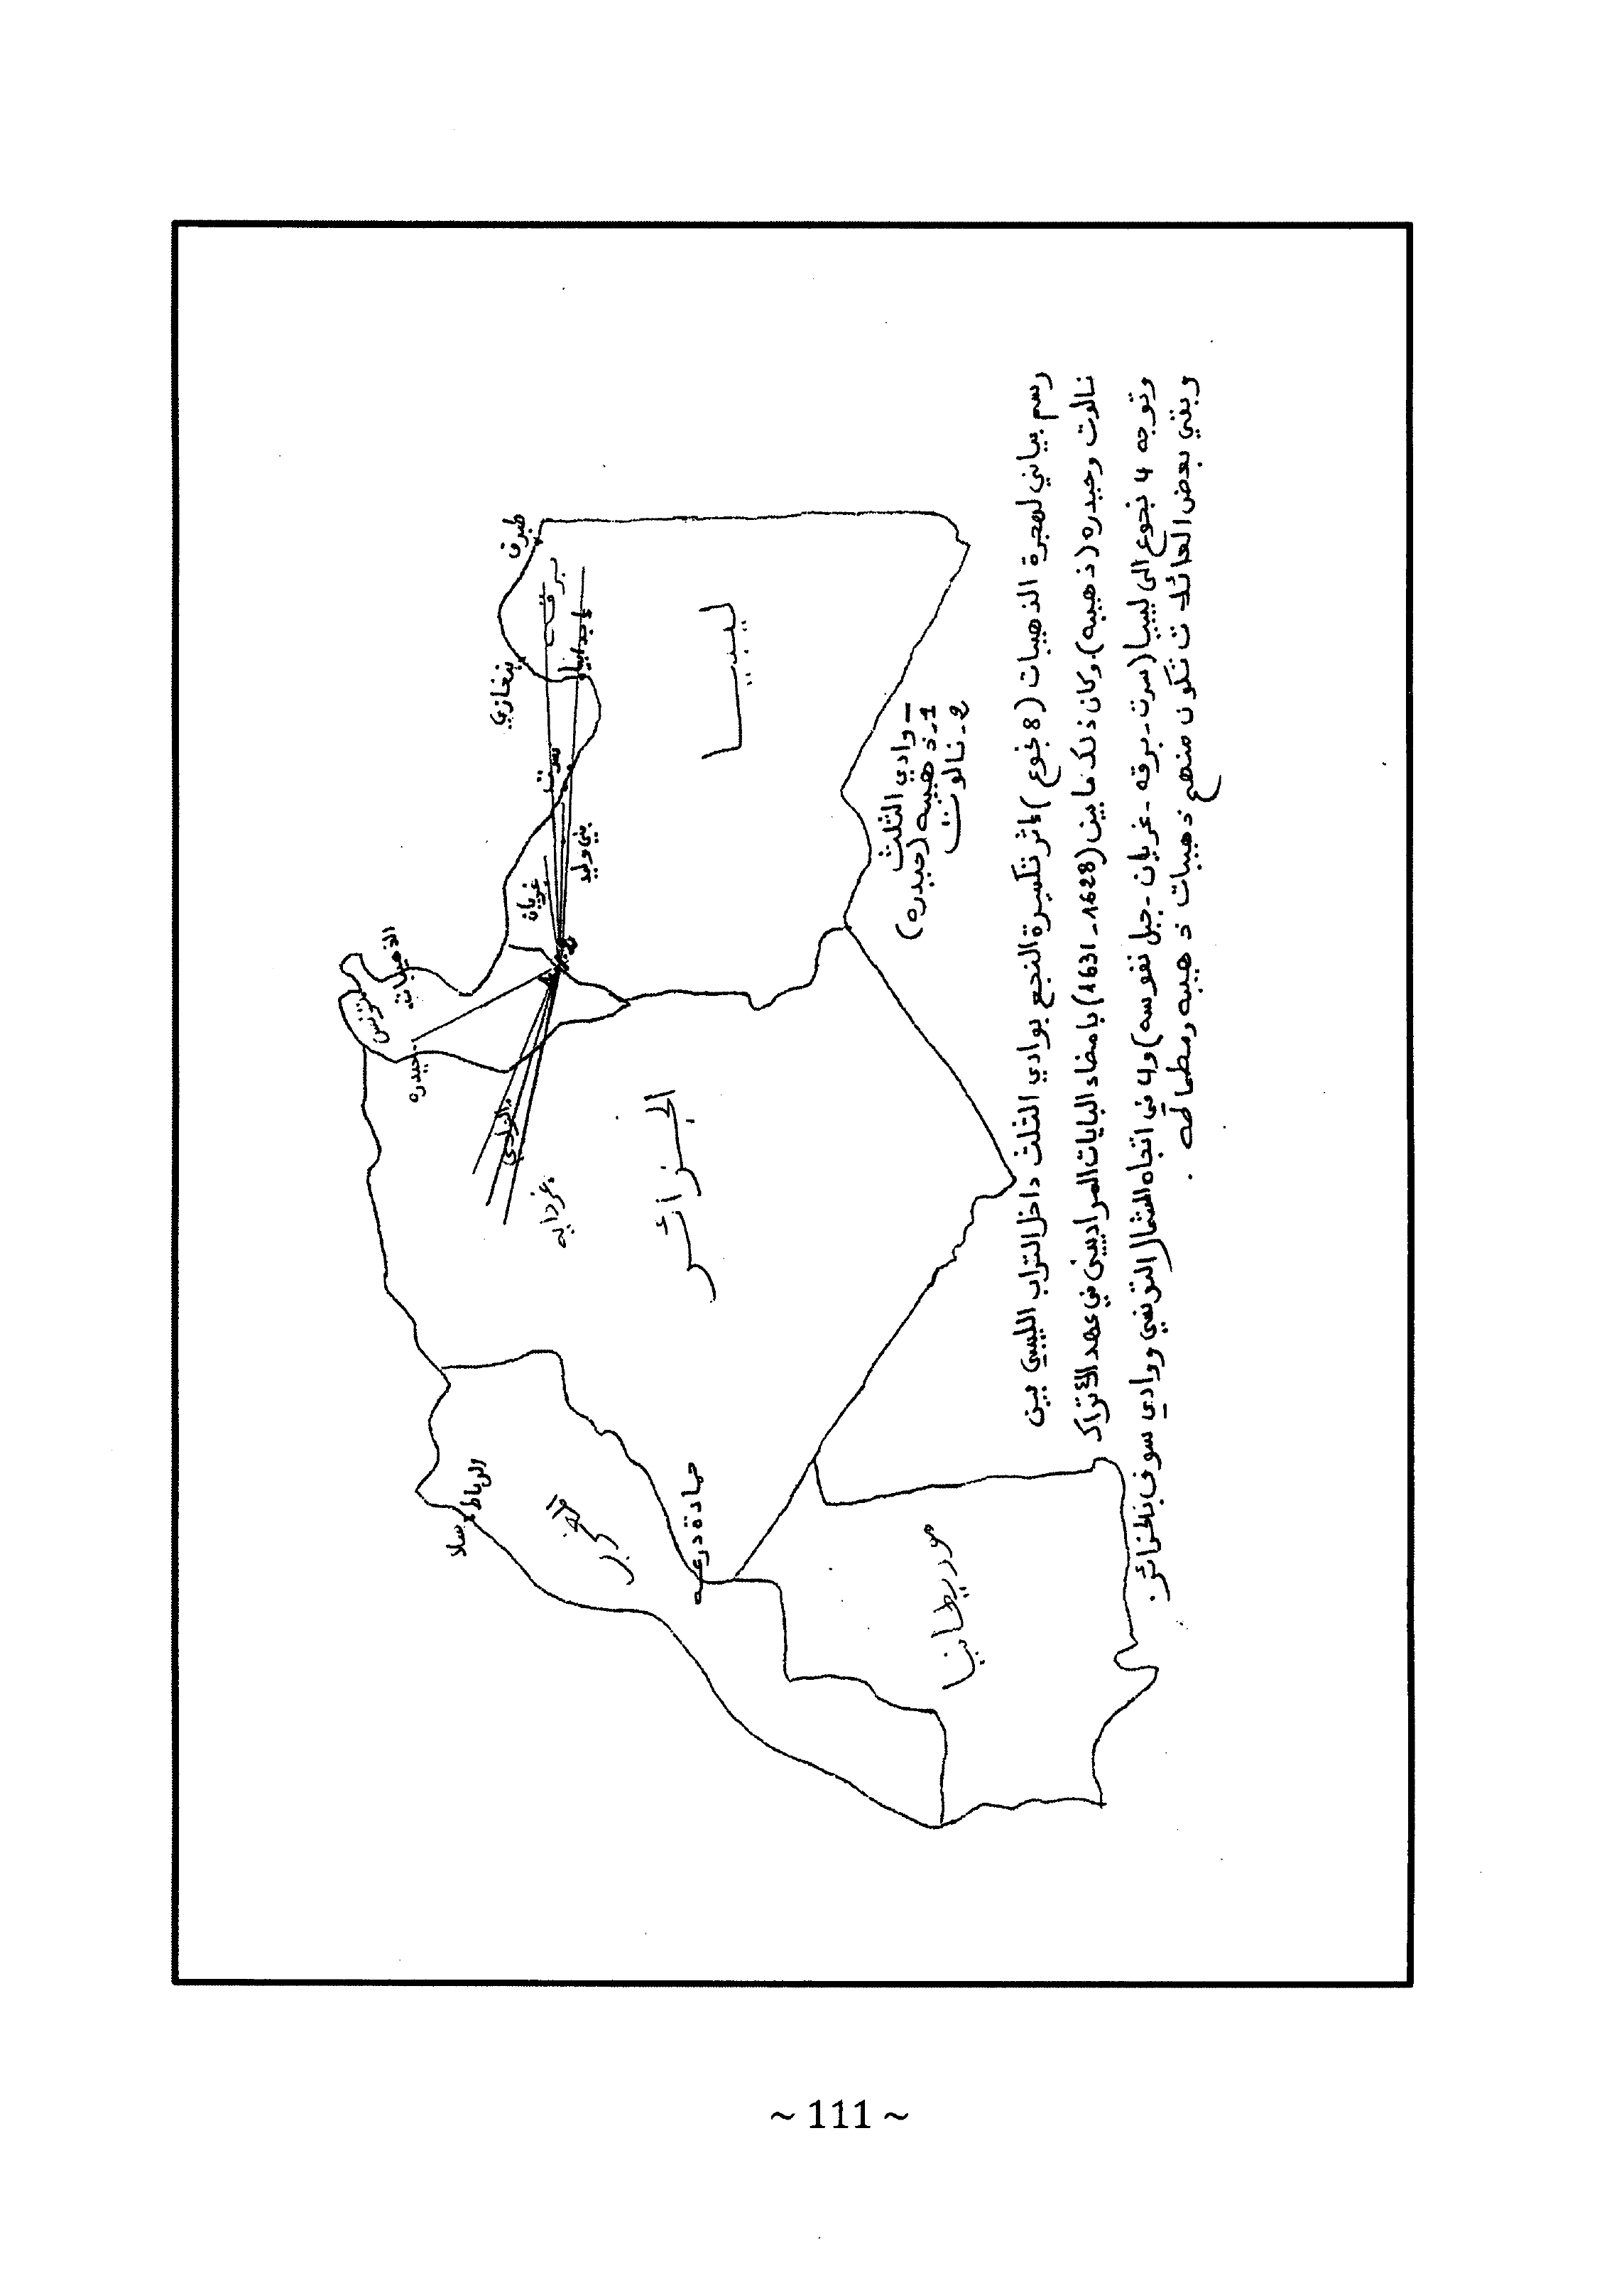 طبرق
برقة
بنغازي
إجدابيا
سرت
بني وليد
غريان
ليبيا
الذهيبات
تونس
حيدره
الوادي
غردايه
الجزائر
الرباط
سلا
المغرب
حمادة درعه
موريطانيا
ـ وادي الثلث
1ـ ذهيبه (حيدره)
2ـ نالوت
رسم بياني لهجرة الذهيبات (8 نجوع) إثر تكسيرة النجع بوادي الثلث داخل التراب الليبي بين
نالوت وحيدره (ذهيبه). وكان ذلك ما بين (1628ـ 1631) بامضاء البايات المراديين في عهد الأتراك
وتوجه 4 نجوع الى ليبيا (سرت ـ برقه ـ غريان ـ جبل نفوسه) و4 في اتجاه الشمال التونسي ووادي سوف بالجزائر.
وبقي بعض العائلات تكون منهم ذهيبات ذهيبه ومطماطه .
~ 111 ~